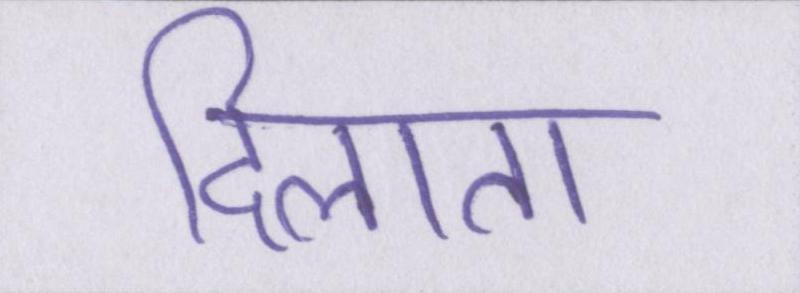 दिलाता